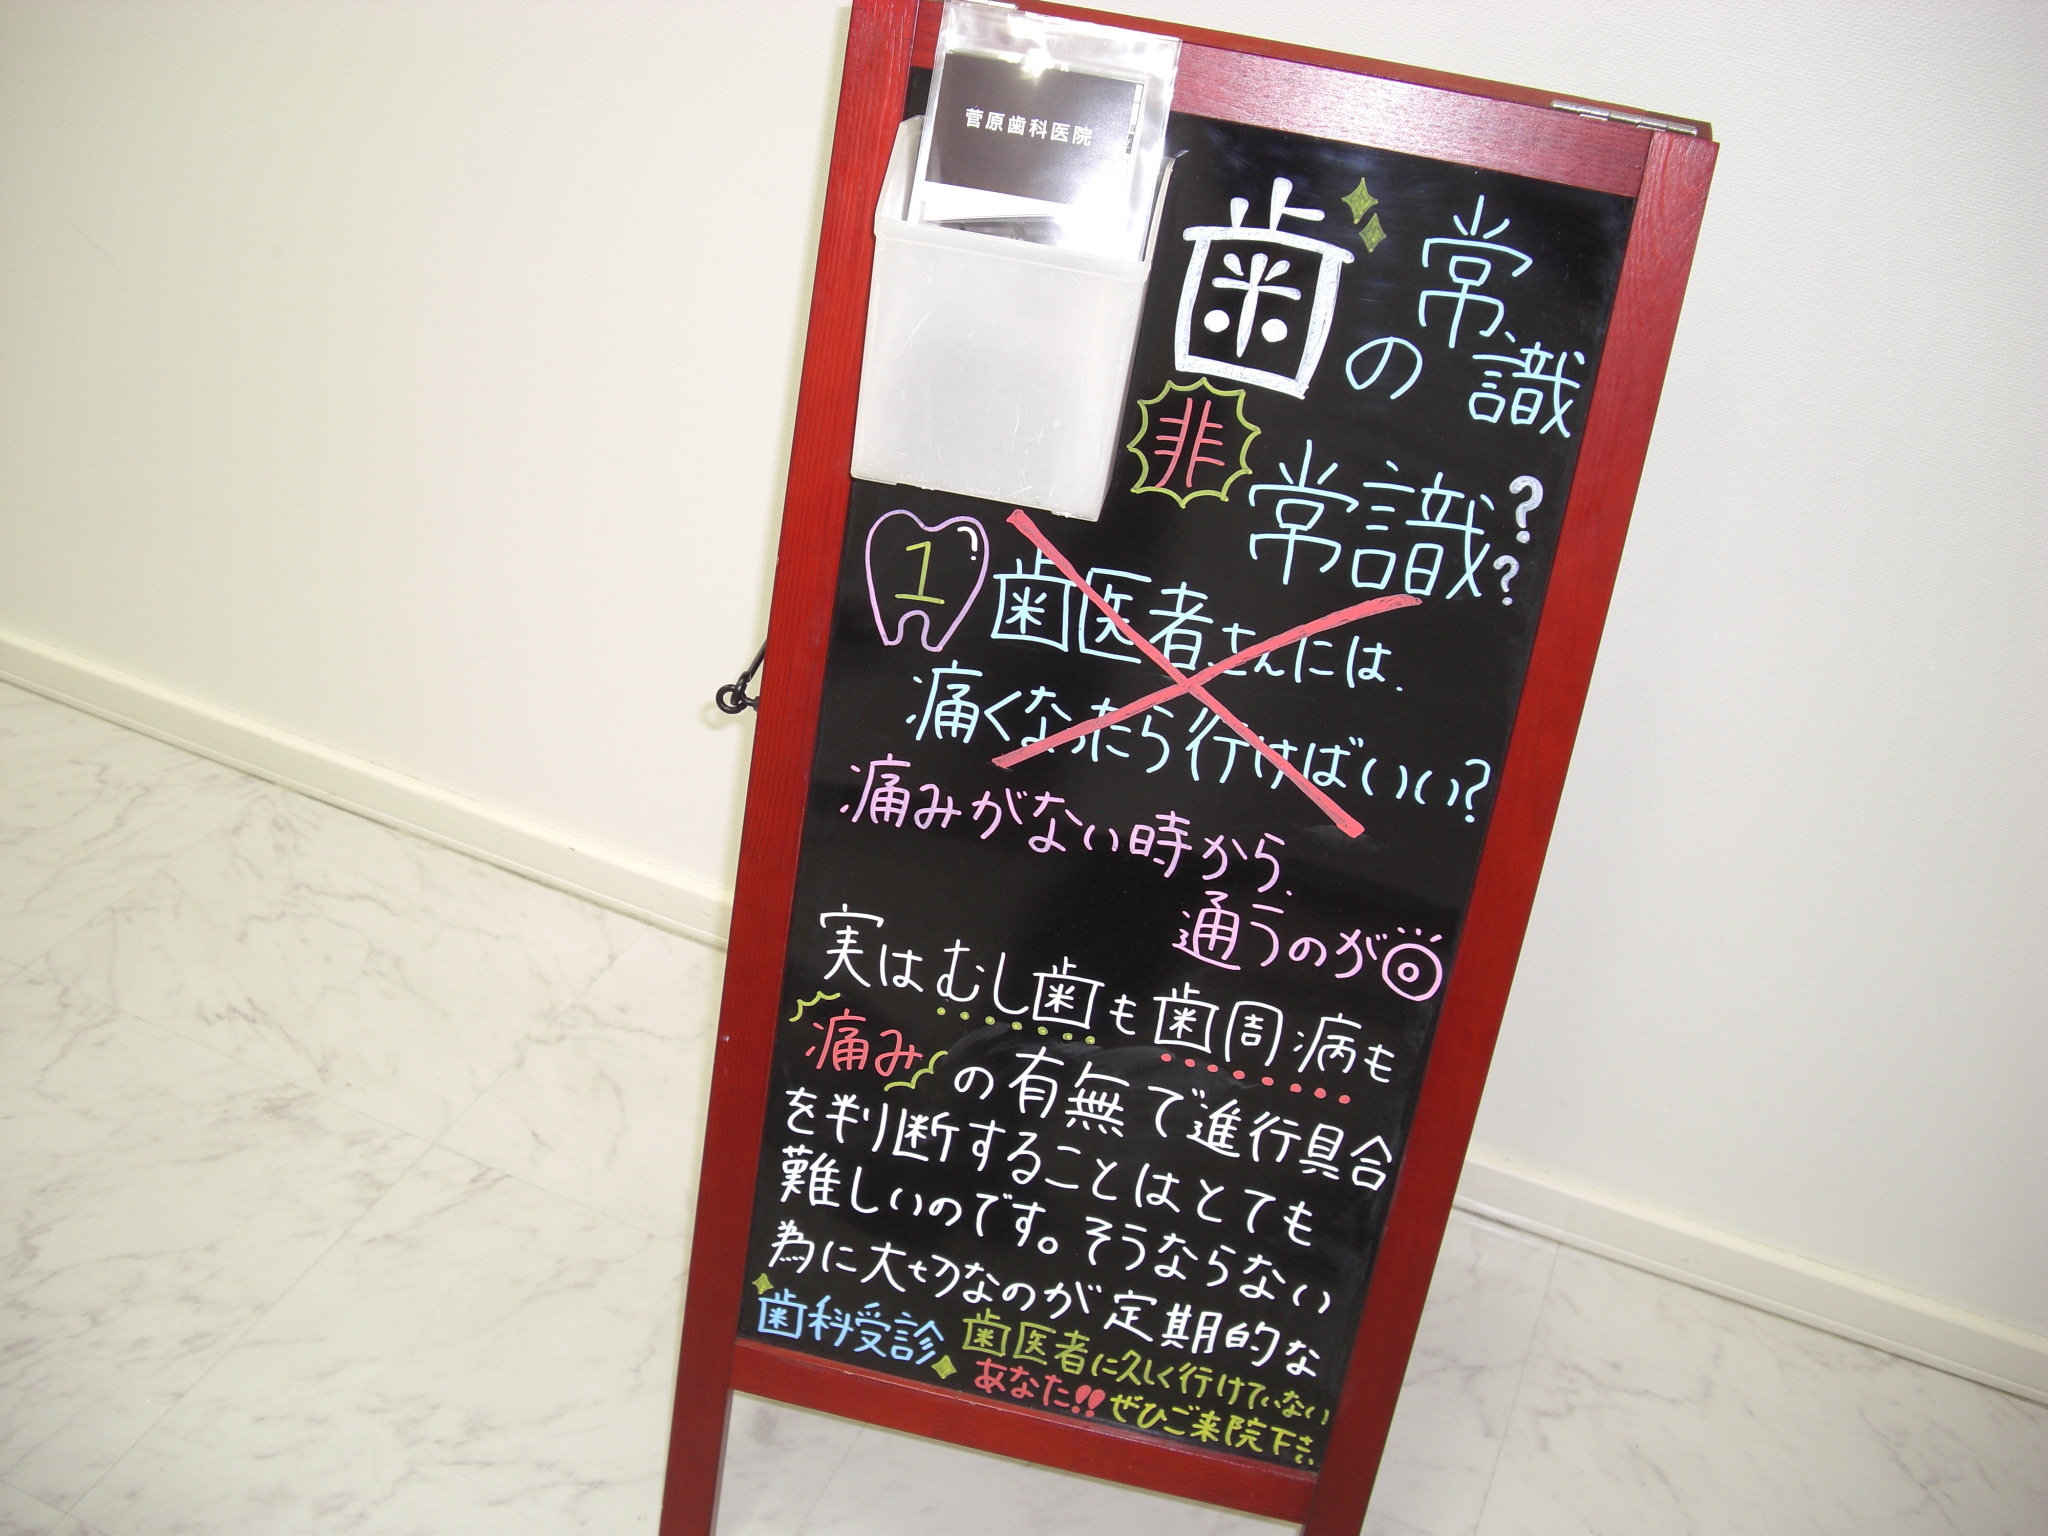 菅原歯科医院
歯の常識
非常識??
1 歯医者さんには、
痛くなったら行けばいい?
痛みがない時から、
通うのが◎
実はむし歯も歯周病も
痛みの有無で進行具合
を判断することはとても
難しいのです。そうならない
為に大切なのが定期的な
歯科受診
歯医者に久しく行けていない
あなた!!ぜひご来院下さい